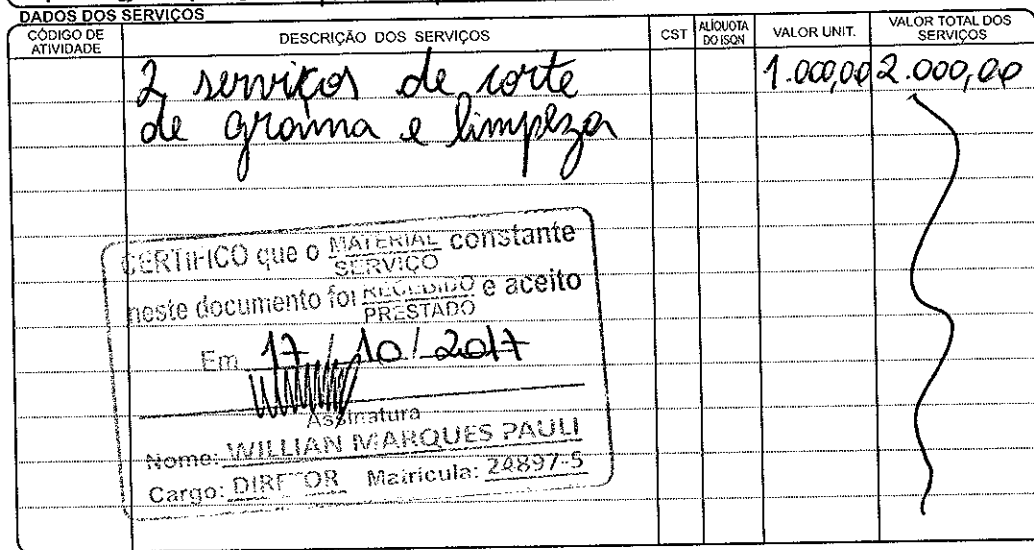 DADOS DOS SERVIÇOS
CÓDIGO DE ATIVIDADE DESCRIÇÃO DOS SERVIÇOS CST ALÍQUOTA DO ISQN VALOR UNIT. VALOR TOTAL DOS SERVIÇOS
2 serviços de corte 1.000,00 2.000,00
de grama e limpeza
CERTIFICO que o MATERIAL constante
SERVIÇO
neste documento foi RECEBIDO e aceito
PRESTADO
Em 17/10/2017
Assinatura
Nome: WILLIAN MARQUES PAULI
Cargo: DIRETOR Matrícula: 24897-5